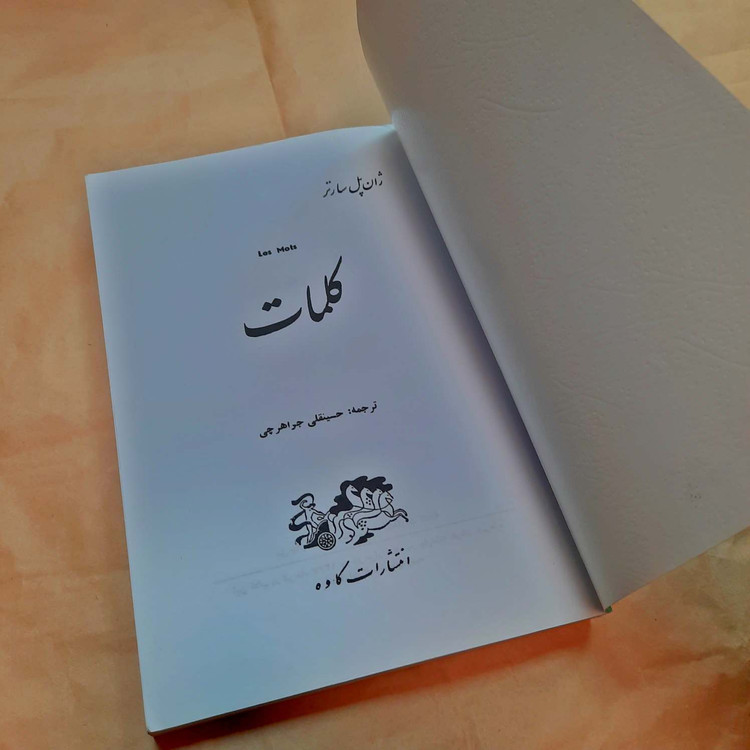 ژان پل سارتر
Les Mots
کلمات
ترجمه: حسینقلی جواهرچی
انتشارات کاوه